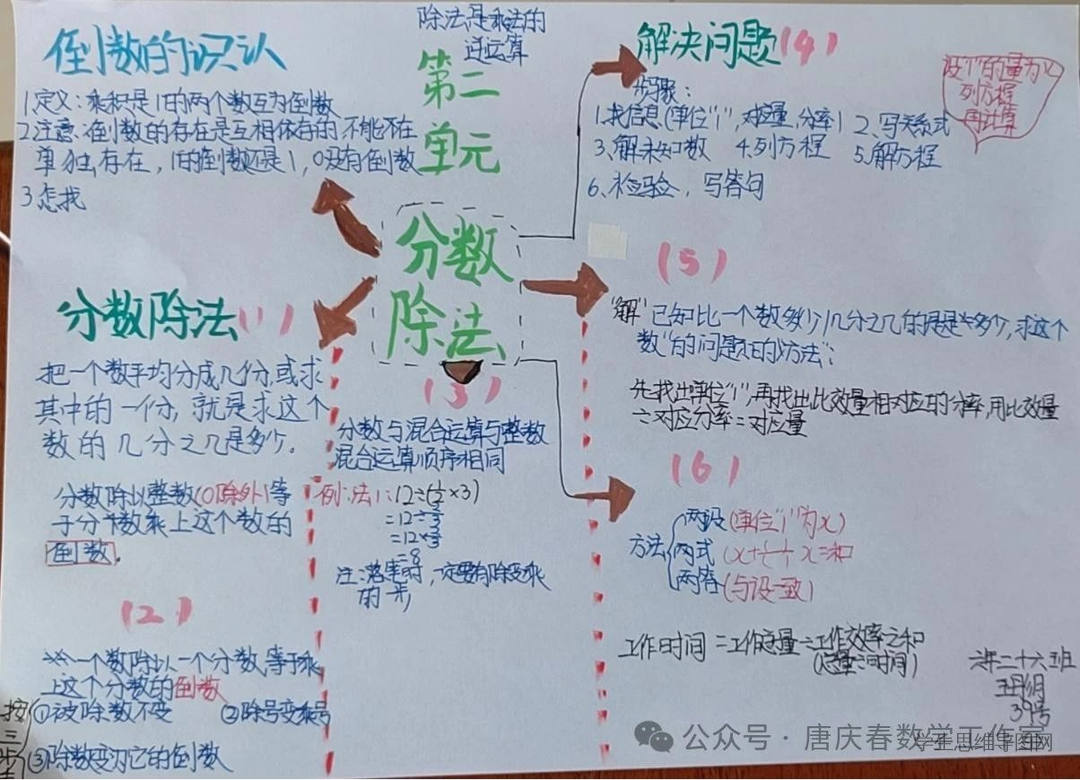 除法是乘法的
逆运算
第二
单元
分数
除法
倒数的认识
1定义:乘积是1的两个数互为倒数
2注意:倒数的存在是互相依存的 不能不在
单独存在,1的倒数还是1,0没有倒数
3怎找
分数除法(1)
把一个数平均分成几份,或求
其中的一份,就是求这个
数的几分之几是多少。
分数除以整数(0除外)等
于分数乘上这个数的
倒数。
(2)
一个数除以一个分数,等于乘
上这个分数的倒数
按三步
①被除数不变 ②除号变乘号
③除数变为它的倒数
(3)
分数与混合运算与整数
混合运算顺序相同
例:法1:12÷(1/2×3)
=12÷3/2
=12×2/3
=8
一定要有除变乘
的一步
解决问题(4)
步骤:
1.找信息(单位"1",对应量,分率) 2.写关系式
3.解未知数 4.列方程 5.解方程
6.检验,写答句
设"1"的量为x
列方程
用计算
(5)
"解"已知比一个数多少几分之几的是多少,求这个
数"的问题的方法":
先找出单位"1",再找出比效量相对应的分率,用比效量
÷对应分率=对应量
(6)
方法
两设(单位"1"为x)
两式
两答(与设一致)
工作时间=工作总量÷工作效率之和
二十六班
39号
公众号·唐庆春数学工作室
学生思维导图网